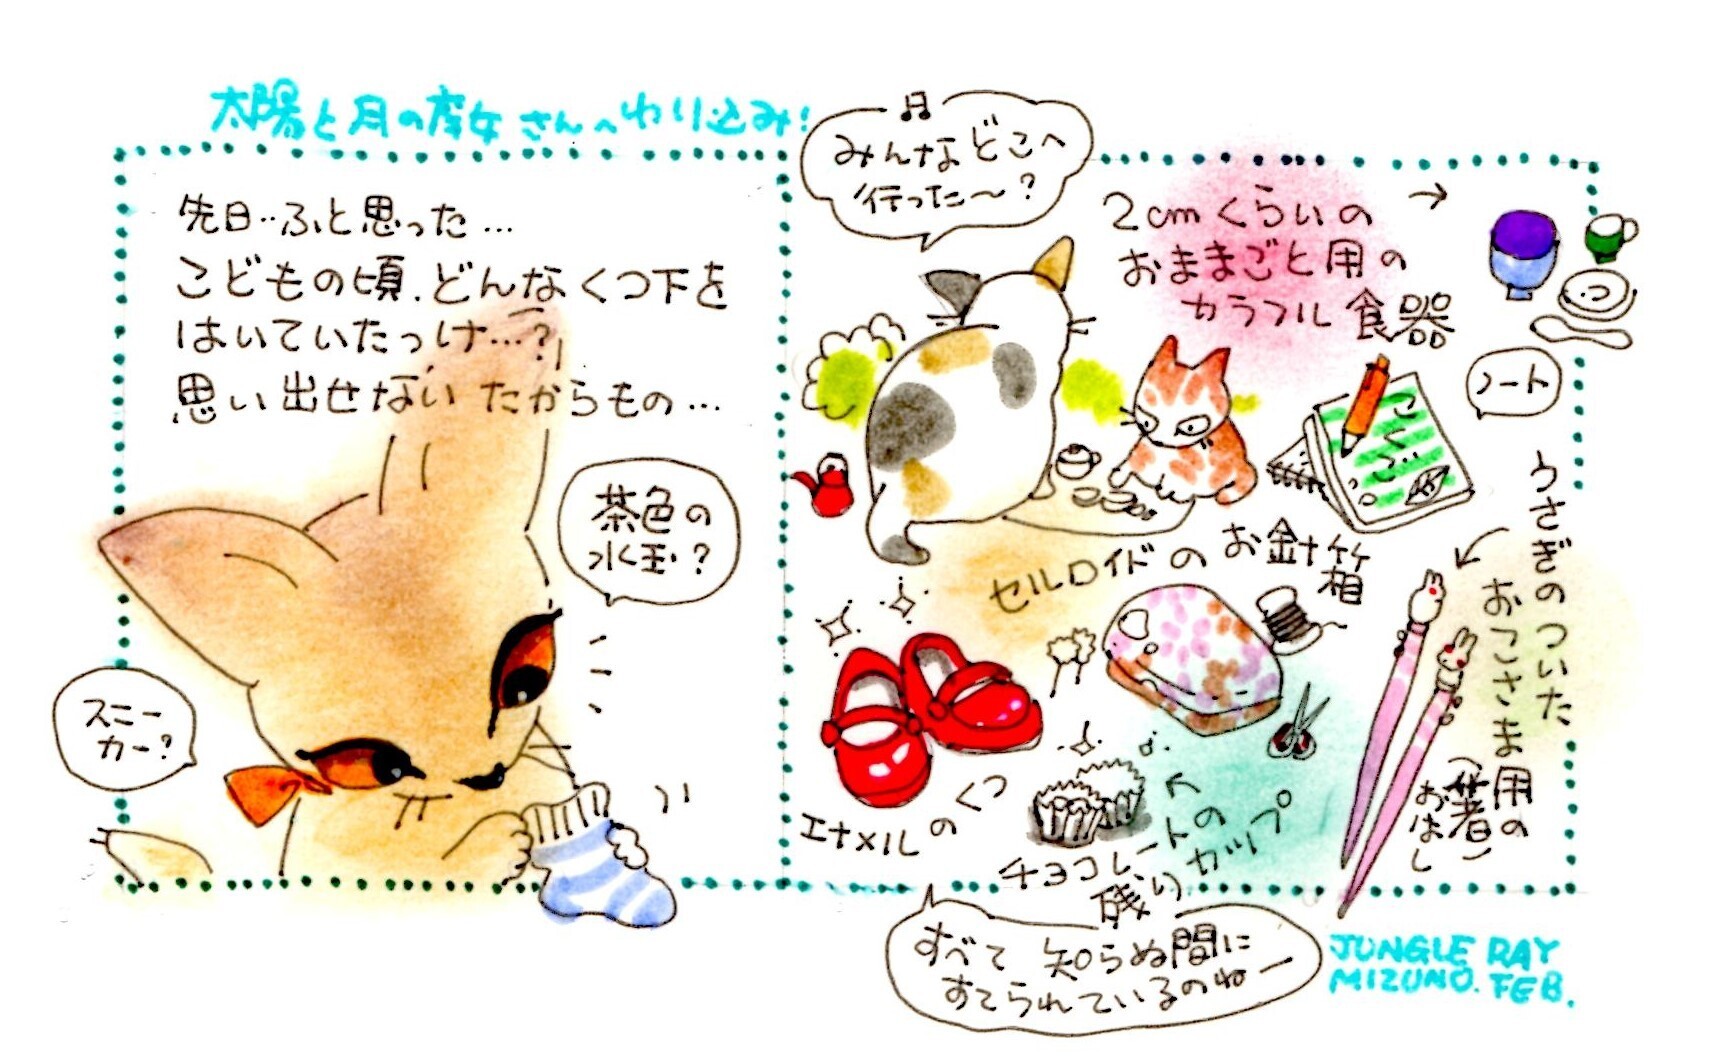 太陽と月の魔女さんへわり込み!
先日‥ふと思った…
こどもの頃.どんなくつ下を
はいていたっけ…?
思い出せない たからもの…
茶色の
水玉?
スニー
カー?
♫
みんなどこへ
行った〜?
2cmくらいの
おままごと用の
カラフル食器
→
ノート
こくご
うさぎのついた
おこさま用の
(箸)
おはし
セルロイドのお針箱
エナメルのくつ
チョコレートの
残りカップ
すべて 知らぬ間に
すてられているのねー
JUNGLE RAY
MIZUNO. FEB.